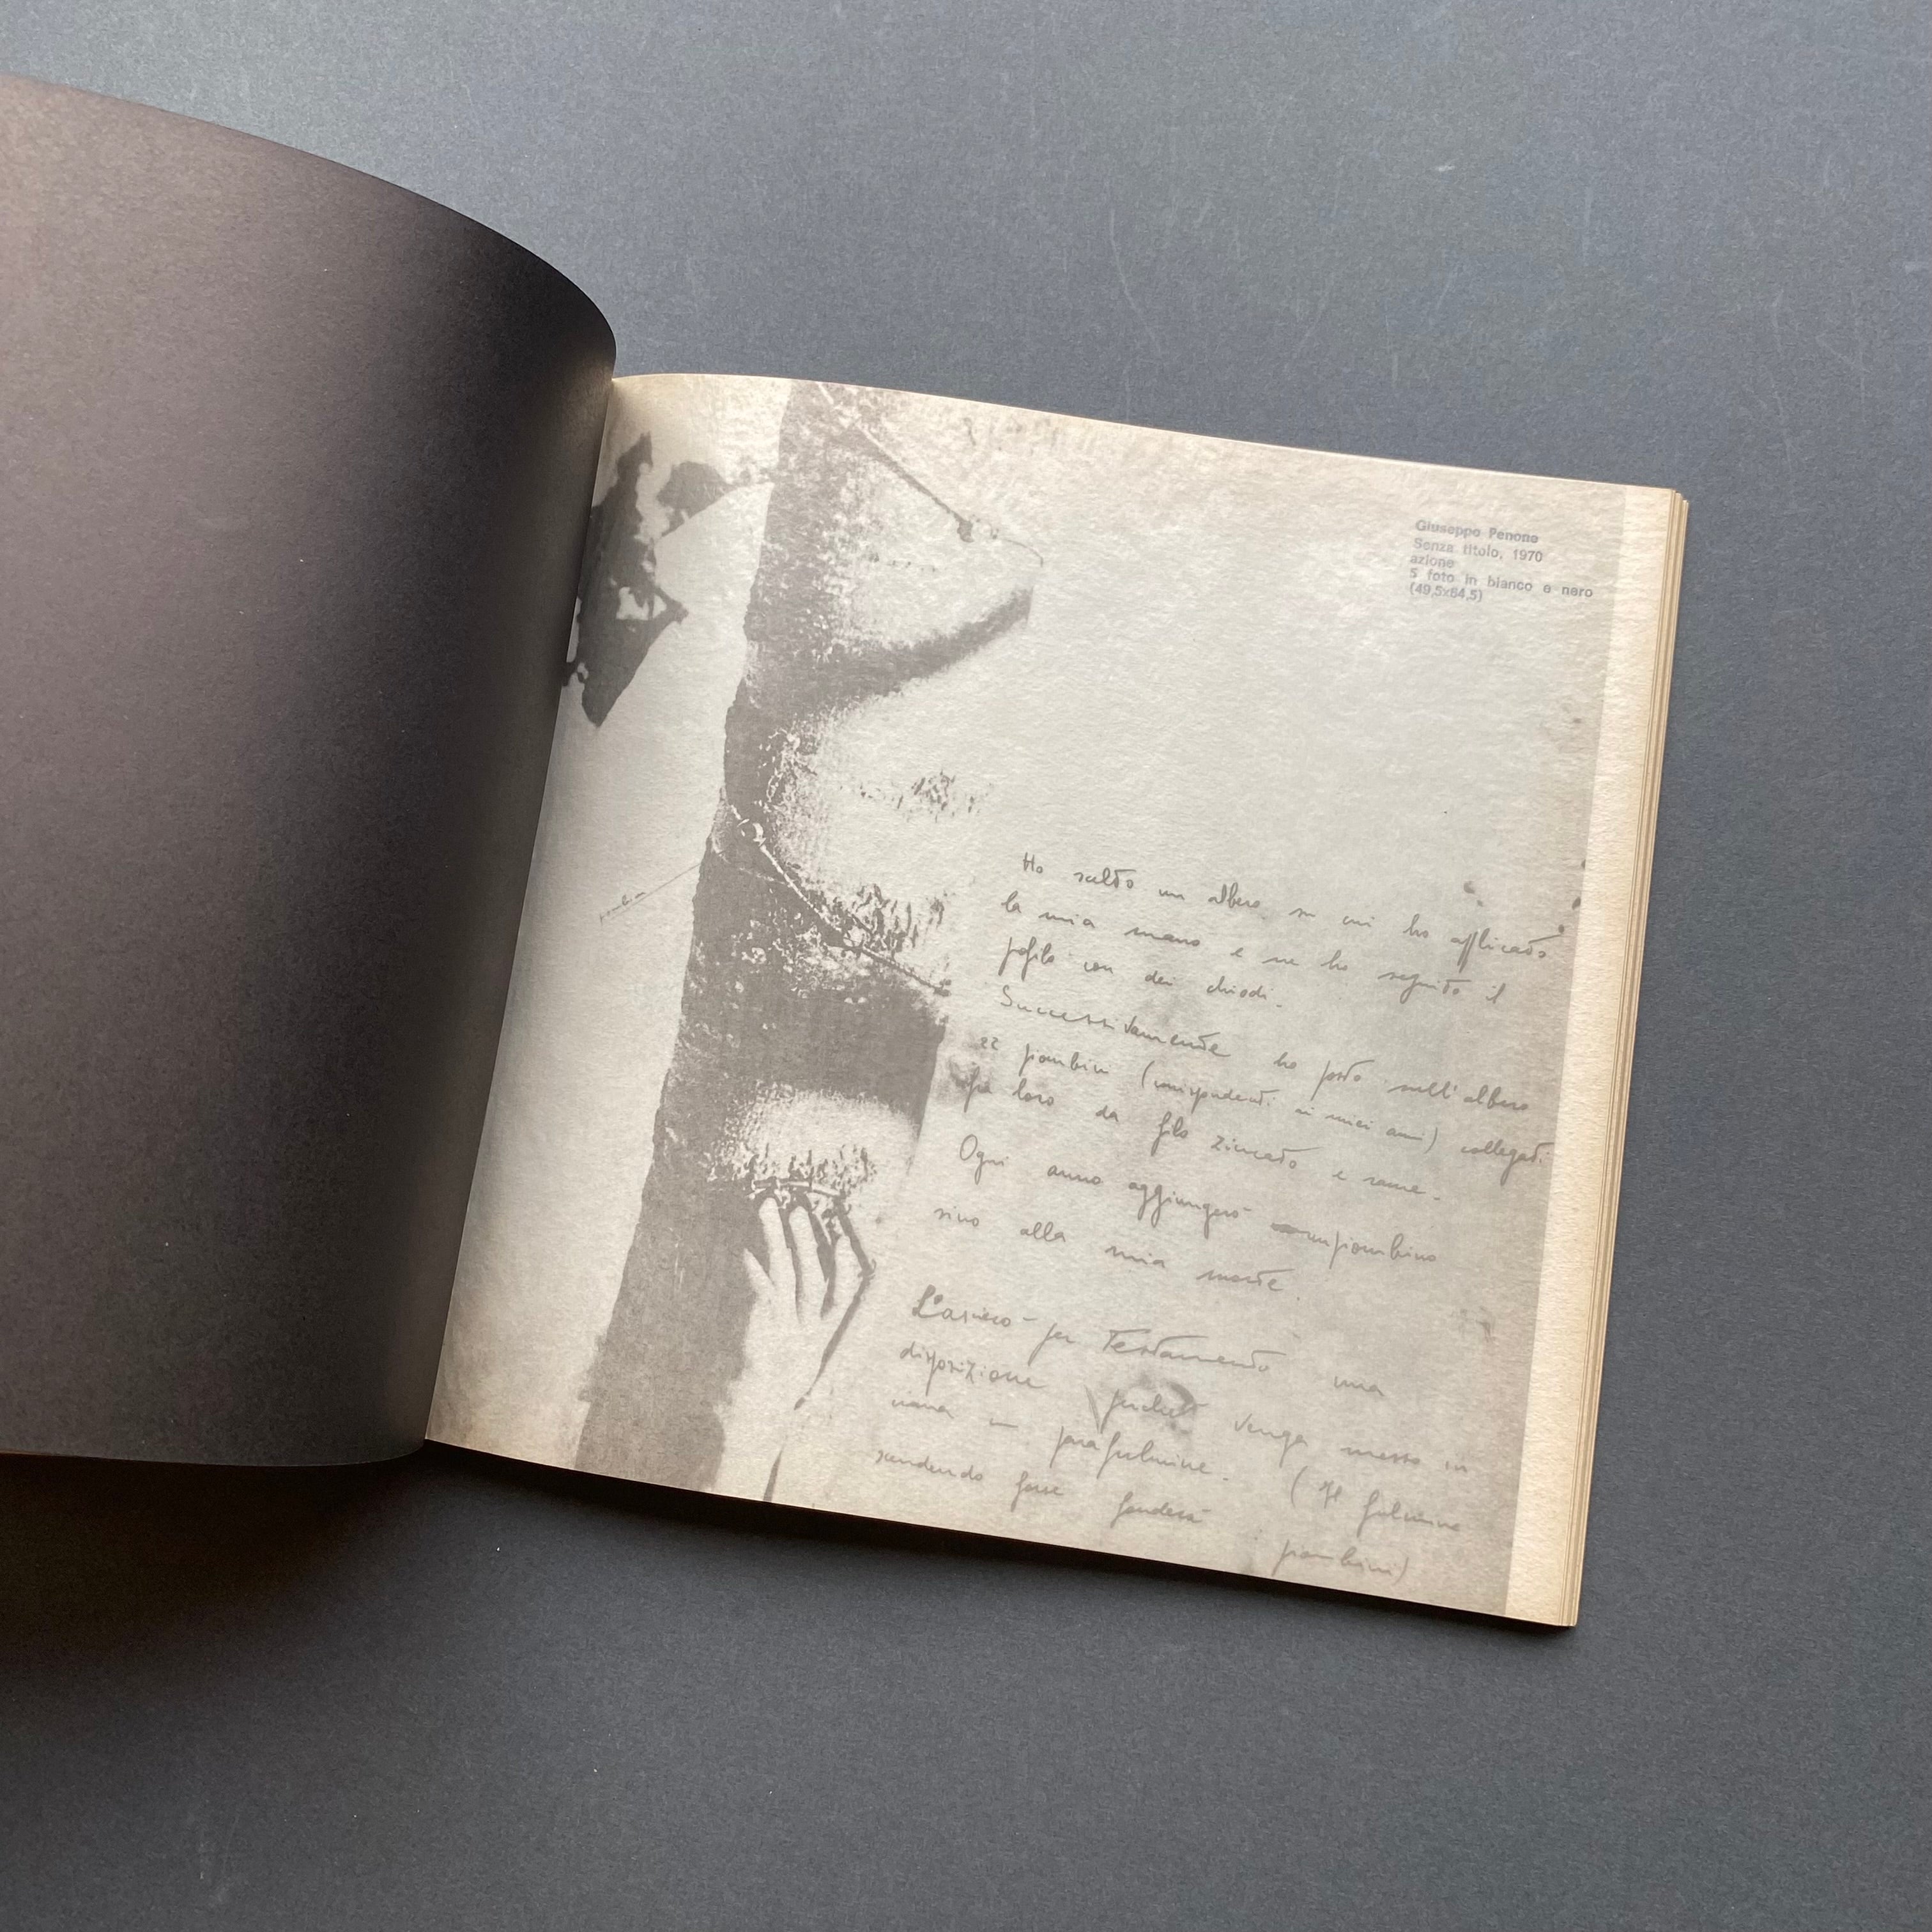 Giuseppe Penone
Senza titolo, 1970
azione
5 foto in bianco e nero
(49,5x64,5)
piombino
Ho scelto un albero, su cui ho applicato
la mia mano e ne ho seguito il
profilo con dei chiodi.
Successivamente ho posto sull'albero
22 piombini (corrispondenti ai miei anni) collegati
fra loro da filo zincato e rame.
Ogni anno aggiungerò un piombino
sino alla mia morte.
Lascerò per Testamento una
disposizione perchè venga messo in
cima un parafulmine. (Il fulmine
scendendo forse fonderà i
piombini)